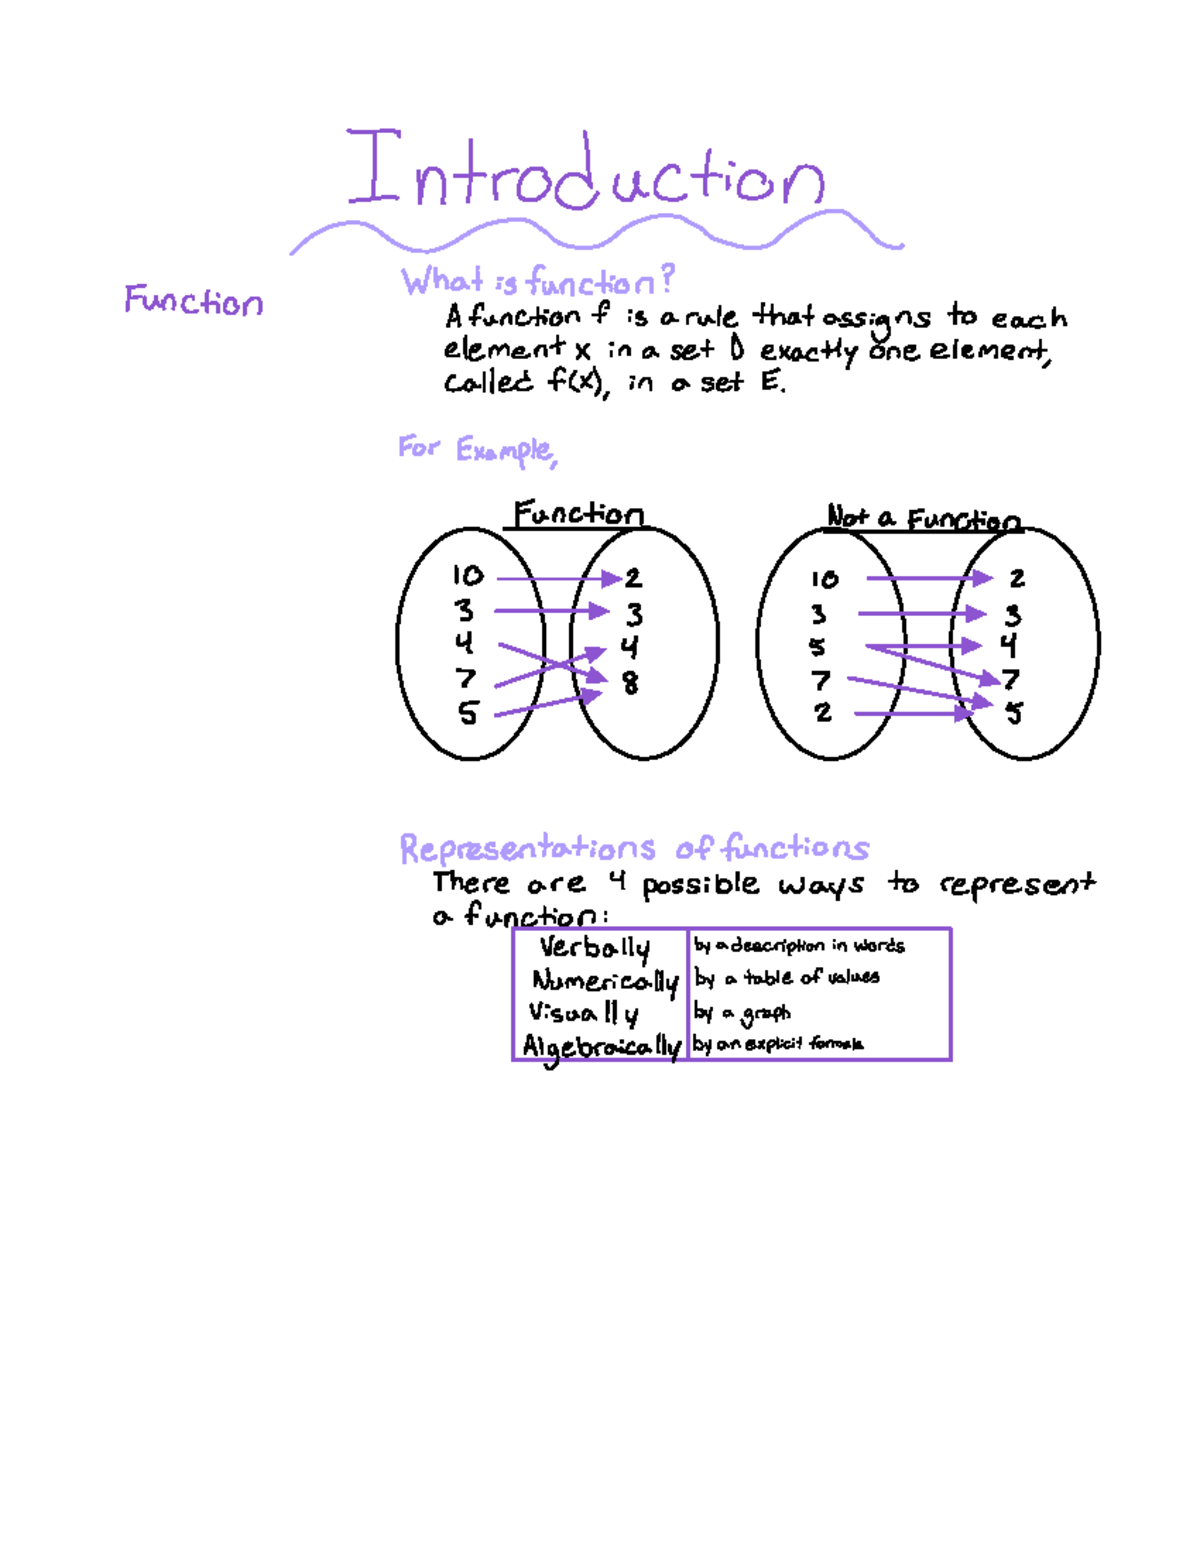 Introduction
Function
What is function?
A function f is a rule that assigns to each
element x in a set D exactly one element,
called f(x), in a set E.
For Example,
Function
Not a Function
10 2
3 3
4 4
7 8
5
10 2
3 3
5 4
7 7
2 5
Representations of functions
There are 4 possible ways to represent
a function:
Verbally by a description in words
Numerically by a table of values
Visually by a graph
Algebraically by an explicit formula